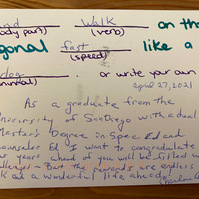 Walk on th
(body part) (verb)
gonal fast like a
(speed)
dog or write your own
april 27, 2021
As a graduate from the
University of San Diego with a dual
Master's Degree in Spec Ed and
Counselor Ed, I want to congratulate
years ahead of you will be filled w
But the rewards are endless
a wonderful life ahead